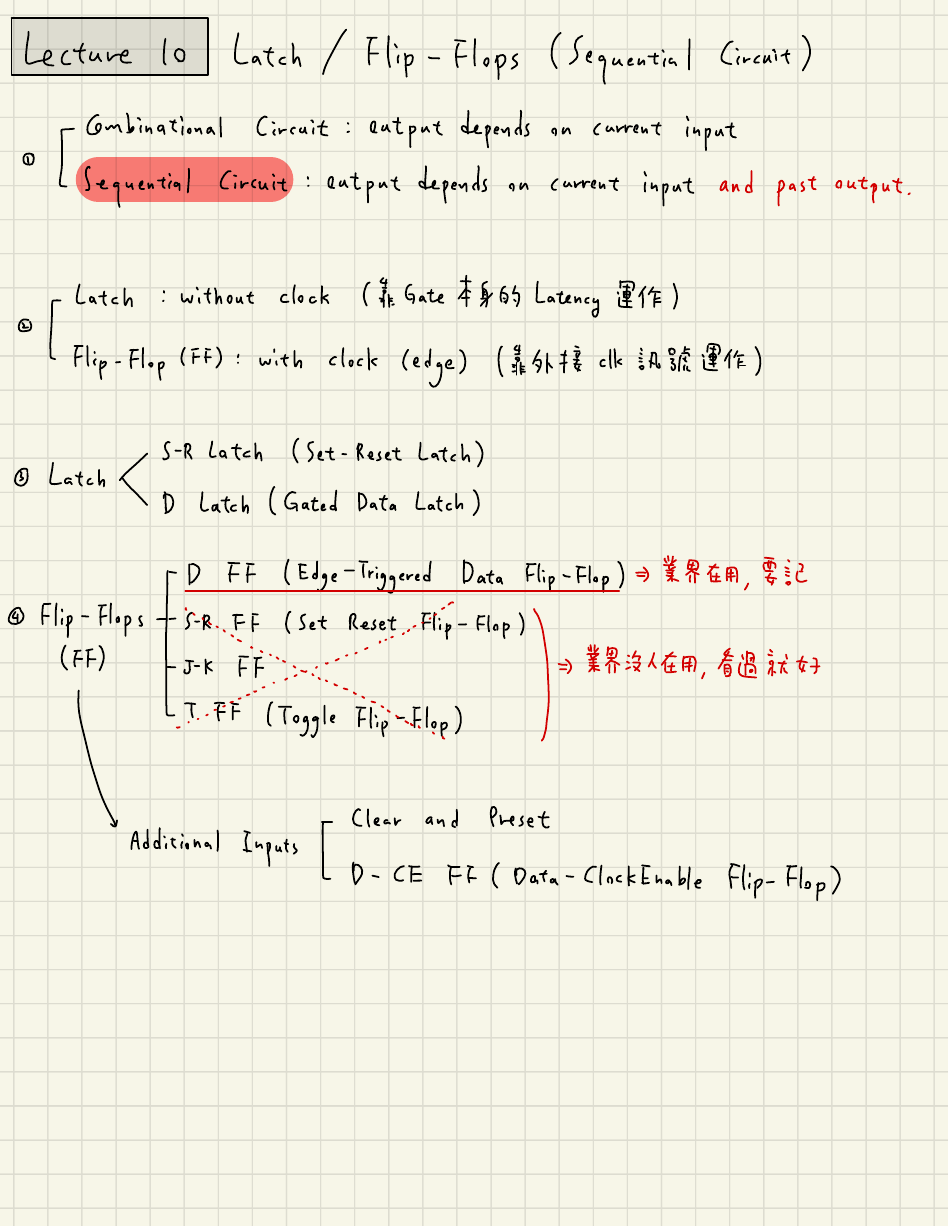 Lecture 10 Latch / Flip-Flops (Sequential Circuit)
① Combinational Circuit : output depends on current input
Sequential Circuit : output depends on current input and past output.
② Latch : without clock (靠 Gate 本身的 Latency 運作)
Flip-Flop (FF) : with clock (edge) (靠外接 clk 訊號運作)
③ Latch
S-R Latch (Set-Reset Latch)
D Latch (Gated Data Latch)
④ Flip-Flops (FF)
D FF (Edge-Triggered Data Flip-Flop) ⇒ 業界在用, 要記
S-R FF (Set Reset Flip-Flop)
J-K FF ⇒ 業界沒人在用, 看過就好
T FF (Toggle Flip-Flop)
Additional Inputs
Clear and Preset
D-CE FF (Data-ClockEnable Flip-Flop)